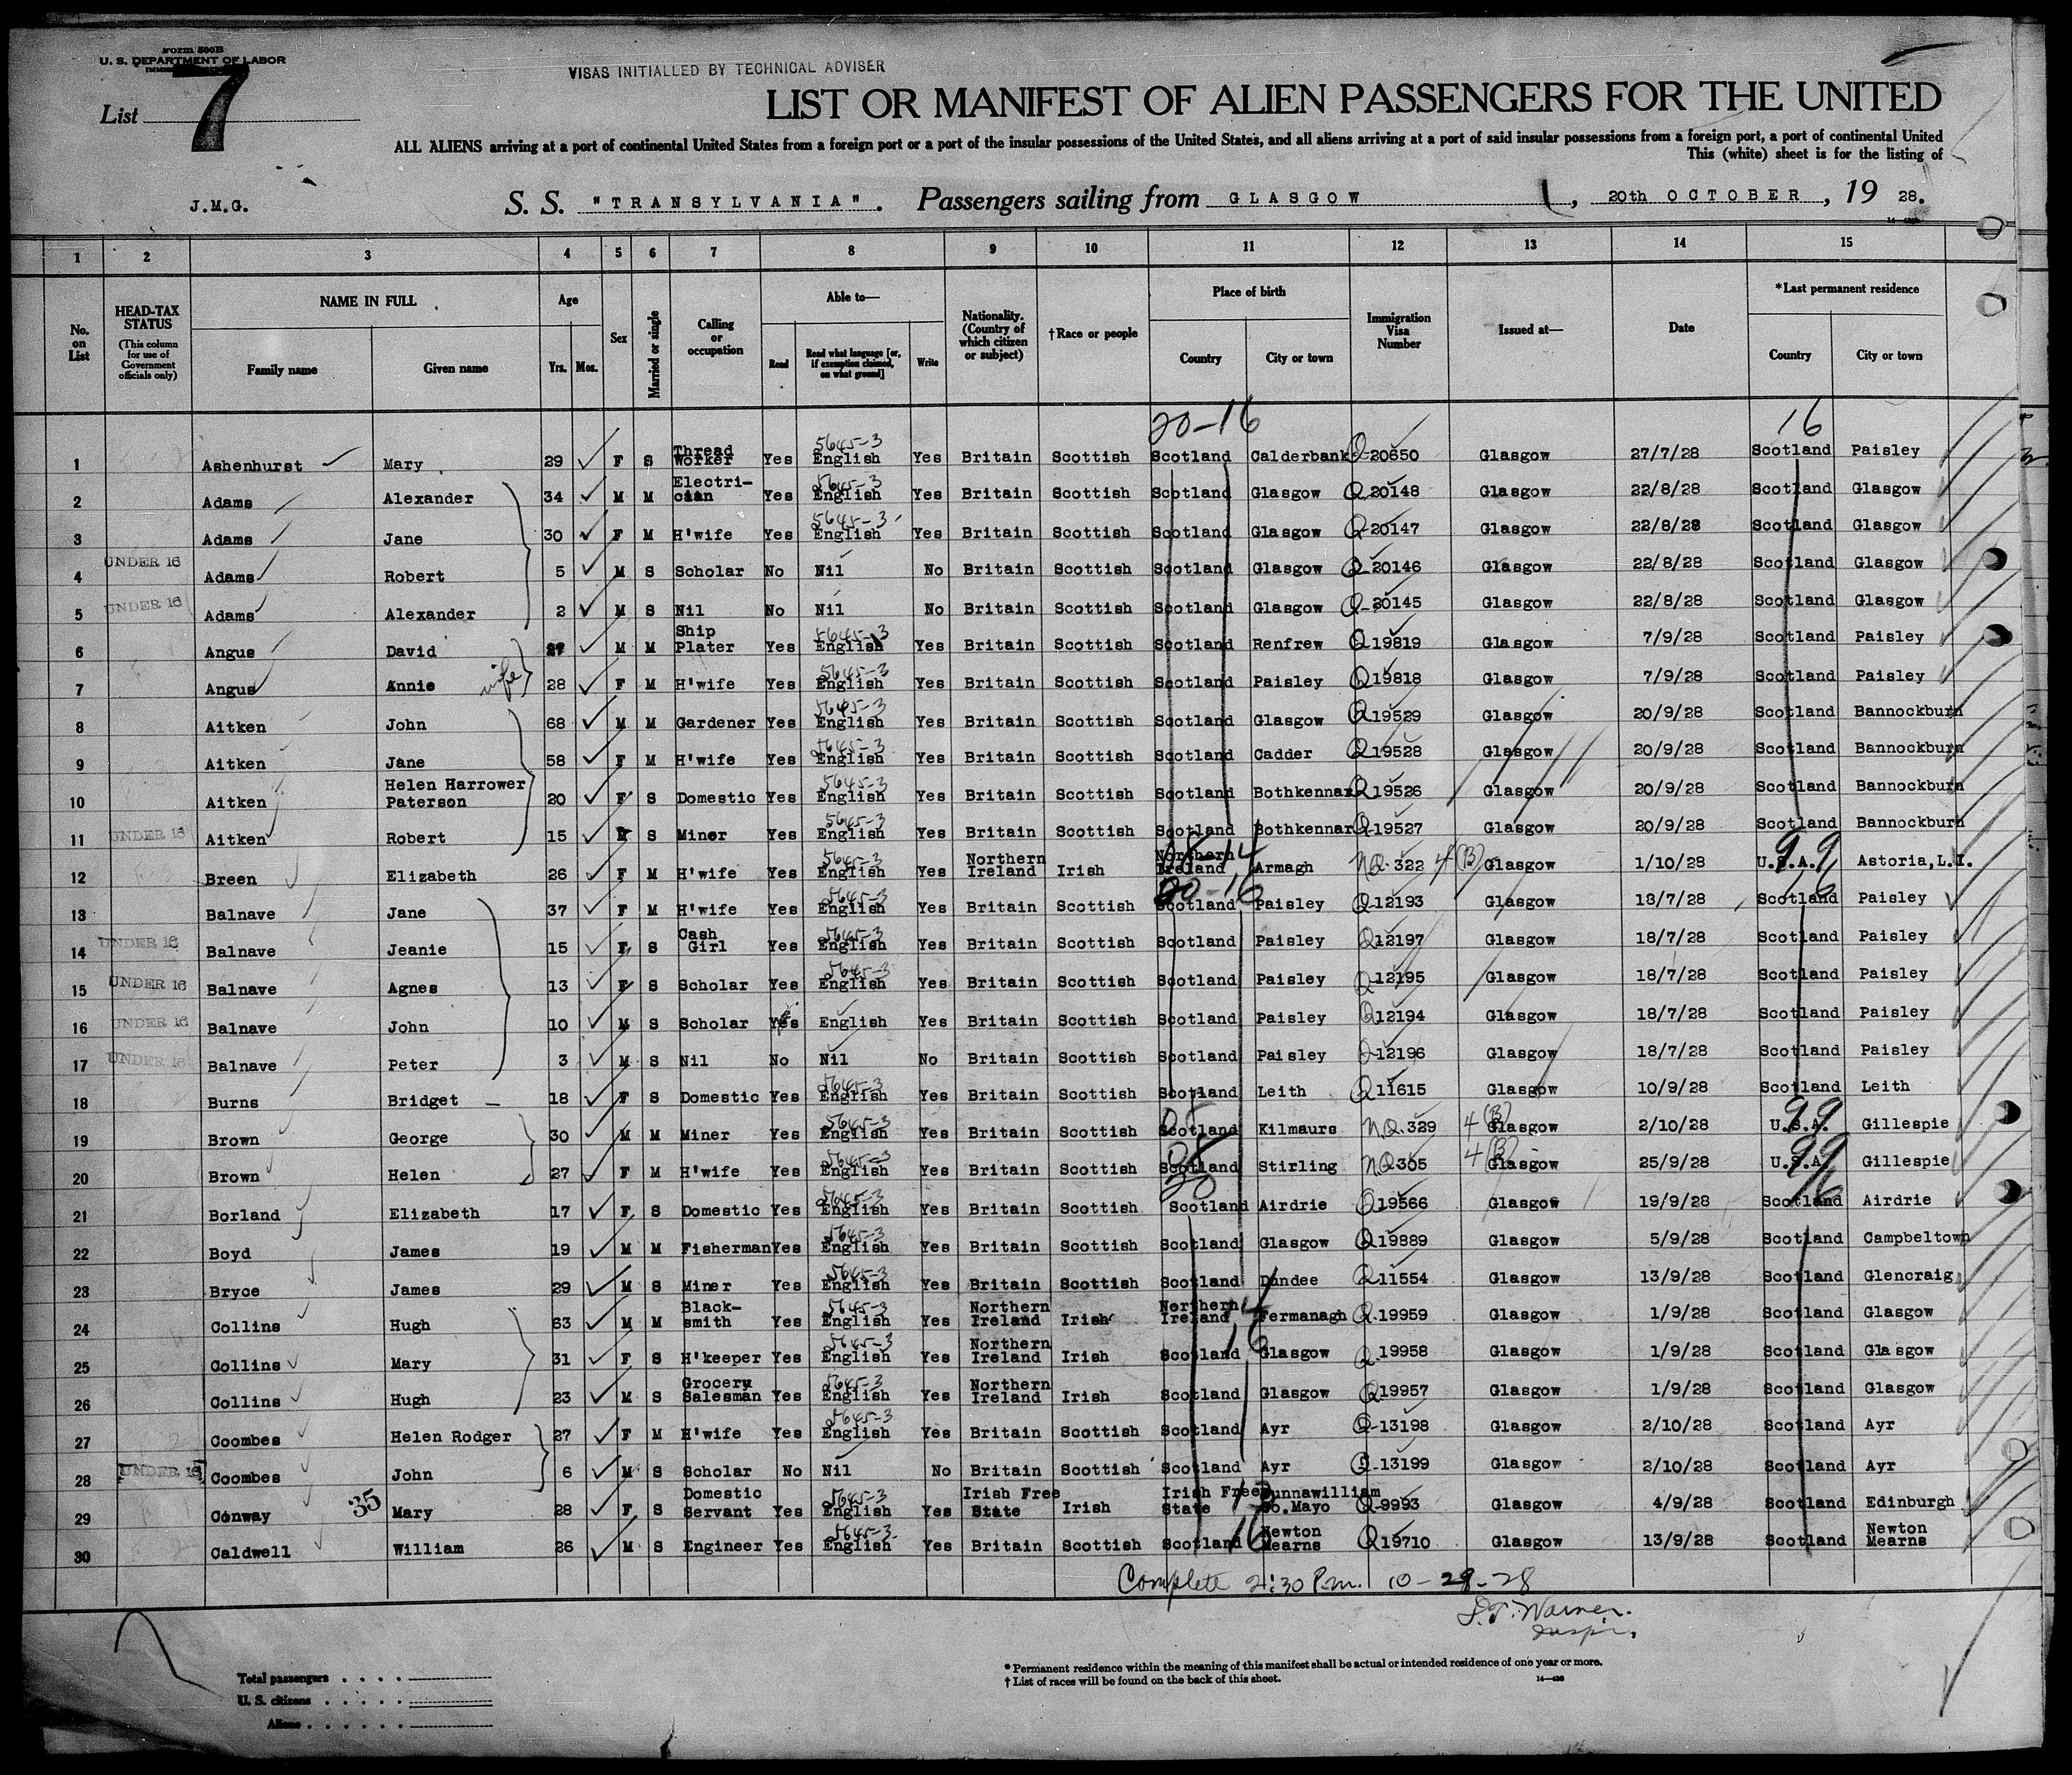 Form 500B
U. S. DEPARTMENT OF LABOR
List 7
VISAS INITIALLED BY TECHNICAL ADVISER
LIST OR MANIFEST OF ALIEN PASSENGERS FOR THE UNITED
ALL ALIENS arriving at a port of continental United States from a foreign port or a port of the insular possessions of the United States, and all aliens arriving at a port of said insular possessions from a foreign port, a port of continental United
This (white) sheet is for the listing of
J.M.G.
S. S. "TRANSYLVANIA". Passengers sailing from GLASGOW, 20th OCTOBER, 19 28.
1 2 3 4 5 6 7 8 9 10 11 12 13 14 15
No. on List
HEAD-TAX STATUS (This column for use of Government officials only)
NAME IN FULL Family name Given name
Age Yrs. Mos.
Sex
Married or single
Calling or occupation
Able to— Read Read what language [or, if exemption claimed, on what ground] Write
Nationality. (Country of which citizen or subject)
†Race or people
Place of birth Country City or town
Immigration Visa Number
Issued at—
Date
*Last permanent residence Country City or town
20-16 16
1 Ashenhurst Mary 29 F S Thread Worker Yes 5645-3 English Yes Britain Scottish Scotland Calderbank Q-20650 Glasgow 27/7/28 Scotland Paisley
2 Adams Alexander 34 M M Electrician Yes 5645-3 English Yes Britain Scottish Scotland Glasgow Q 20148 Glasgow 22/8/28 Scotland Glasgow
3 Adams Jane 30 F M H'wife Yes 5645-3 English Yes Britain Scottish Scotland Glasgow Q-20147 Glasgow 22/8/28 Scotland Glasgow
4 UNDER 16 Adams Robert 5 M S Scholar No Nil No Britain Scottish Scotland Glasgow Q-20146 Glasgow 22/8/28 Scotland Glasgow
5 UNDER 16 Adams Alexander 2 M S Nil No Nil No Britain Scottish Scotland Glasgow Q-20145 Glasgow 22/8/28 Scotland Glasgow
6 Angus David M M Ship Plater Yes 5645-3 English Yes Britain Scottish Scotland Renfrew Q 19819 Glasgow 7/9/28 Scotland Paisley
7 Angus Annie wife 28 F M H'wife Yes 5645-3 English Yes Britain Scottish Scotland Paisley Q 19818 Glasgow 7/9/28 Scotland Paisley
8 Aitken John 68 M M Gardener Yes 5645-3 English Yes Britain Scottish Scotland Glasgow Q 19529 Glasgow 20/9/28 Scotland Bannockburn
9 Aitken Jane 58 F M H'wife Yes 5645-3 English Yes Britain Scottish Scotland Cadder Q 19528 Glasgow 20/9/28 Scotland Bannockburn
10 Aitken Helen Harrower Paterson 20 F S Domestic Yes 5645-3 English Yes Britain Scottish Scotland Bothkennar Q 19526 Glasgow 20/9/28 Scotland Bannockburn
11 UNDER 16 Aitken Robert 15 M S Miner Yes 5645-3 English Yes Britain Scottish Scotland Bothkennar Q-19527 Glasgow 20/9/28 Scotland Bannockburn
12 Breen Elizabeth 26 F M H'wife Yes 5645-3 English Yes Northern Ireland Irish Northern Ireland Armagh N.Q. 322 4(B) Glasgow 1/10/28 U.S.A. 99 Astoria, L.I.
13 Balnave Jane 37 F M H'wife Yes 5645-3 English Yes Britain Scottish 20-16 Scotland Paisley Q-12193 Glasgow 18/7/28 16 Scotland Paisley
14 UNDER 16 Balnave Jeanie 15 F S Cash Girl Yes 5645-3 English Yes Britain Scottish Scotland Paisley Q 12197 Glasgow 18/7/28 Scotland Paisley
15 UNDER 16 Balnave Agnes 13 F S Scholar Yes 5645-3 English Yes Britain Scottish Scotland Paisley Q 12195 Glasgow 18/7/28 Scotland Paisley
16 UNDER 16 Balnave John 10 M S Scholar Yes English Yes Britain Scottish Scotland Paisley Q 12194 Glasgow 18/7/28 Scotland Paisley
17 UNDER 16 Balnave Peter 3 M S Nil No Nil No Britain Scottish Scotland Paisley Q-12196 Glasgow 18/7/28 Scotland Paisley
18 Burns Bridget 18 F S Domestic Yes 5645-3 English Yes Britain Scottish Scotland Leith Q 11615 Glasgow 10/9/28 Scotland Leith
19 Brown George 30 M M Miner Yes 5645-3 English Yes Britain Scottish Scotland Kilmaurs N.Q. 329 4(B) Glasgow 2/10/28 U.S.A. 99 Gillespie
20 Brown Helen 27 F M H'wife Yes 5645-3 English Yes Britain Scottish Scotland Stirling N.Q 305 4(B) Glasgow 25/9/28 U.S.A. 99 Gillespie
21 Borland Elizabeth 17 F S Domestic Yes 5645-3 English Yes Britain Scottish 20 Scotland Airdrie Q 19566 Glasgow 19/9/28 16 Scotland Airdrie
22 Boyd James 19 M M Fisherman Yes 5645-3 English Yes Britain Scottish Scotland Glasgow Q 19889 Glasgow 5/9/28 Scotland Campbeltown
23 Bryce James 29 M S Miner Yes 5645-3 English Yes Britain Scottish Scotland Dundee Q 11554 Glasgow 13/9/28 Scotland Glencraig
24 Collins Hugh 63 M M Blacksmith Yes 5645-3 English Yes Northern Ireland Irish Northern Ireland 14 Fermanagh Q.19959 Glasgow 1/9/28 Scotland Glasgow
25 Collins Mary 31 F S H'keeper Yes 5645-3 English Yes Northern Ireland Irish Scotland 16 Glasgow Q 19958 Glasgow 1/9/28 Scotland Glasgow
26 Collins Hugh 23 M S Grocery Salesman Yes 5645-3 English Yes Northern Ireland Irish Scotland Glasgow Q 19957 Glasgow 1/9/28 Scotland Glasgow
27 Coombes Helen Rodger 27 F M H'wife Yes 5645-3 English Yes Britain Scottish Scotland Ayr Q-13198 Glasgow 2/10/28 Scotland Ayr
28 UNDER 16 Coombes John 6 M S Scholar No Nil No Britain Scottish Scotland Ayr Q-13199 Glasgow 2/10/28 Scotland Ayr
29 Conway 35 Mary 28 F S Domestic Servant Yes 5645-3 English Yes Irish Free State Irish Irish Free State 13 Dunnawilliam Co. Mayo Q-9993 Glasgow 4/9/28 Scotland Edinburgh
30 Caldwell William 26 M S Engineer Yes 5645-3 English Yes Britain Scottish Scotland 16 Newton Mearns Q 19710 Glasgow 13/9/28 Scotland Newton Mearns
Complete 2:30 P.m. 10-29-28
Warner.
Inspr.
Total passengers
U. S. citizens
Aliens
* Permanent residence within the meaning of this manifest shall be actual or intended residence of one year or more.
† List of races will be found on the back of this sheet.